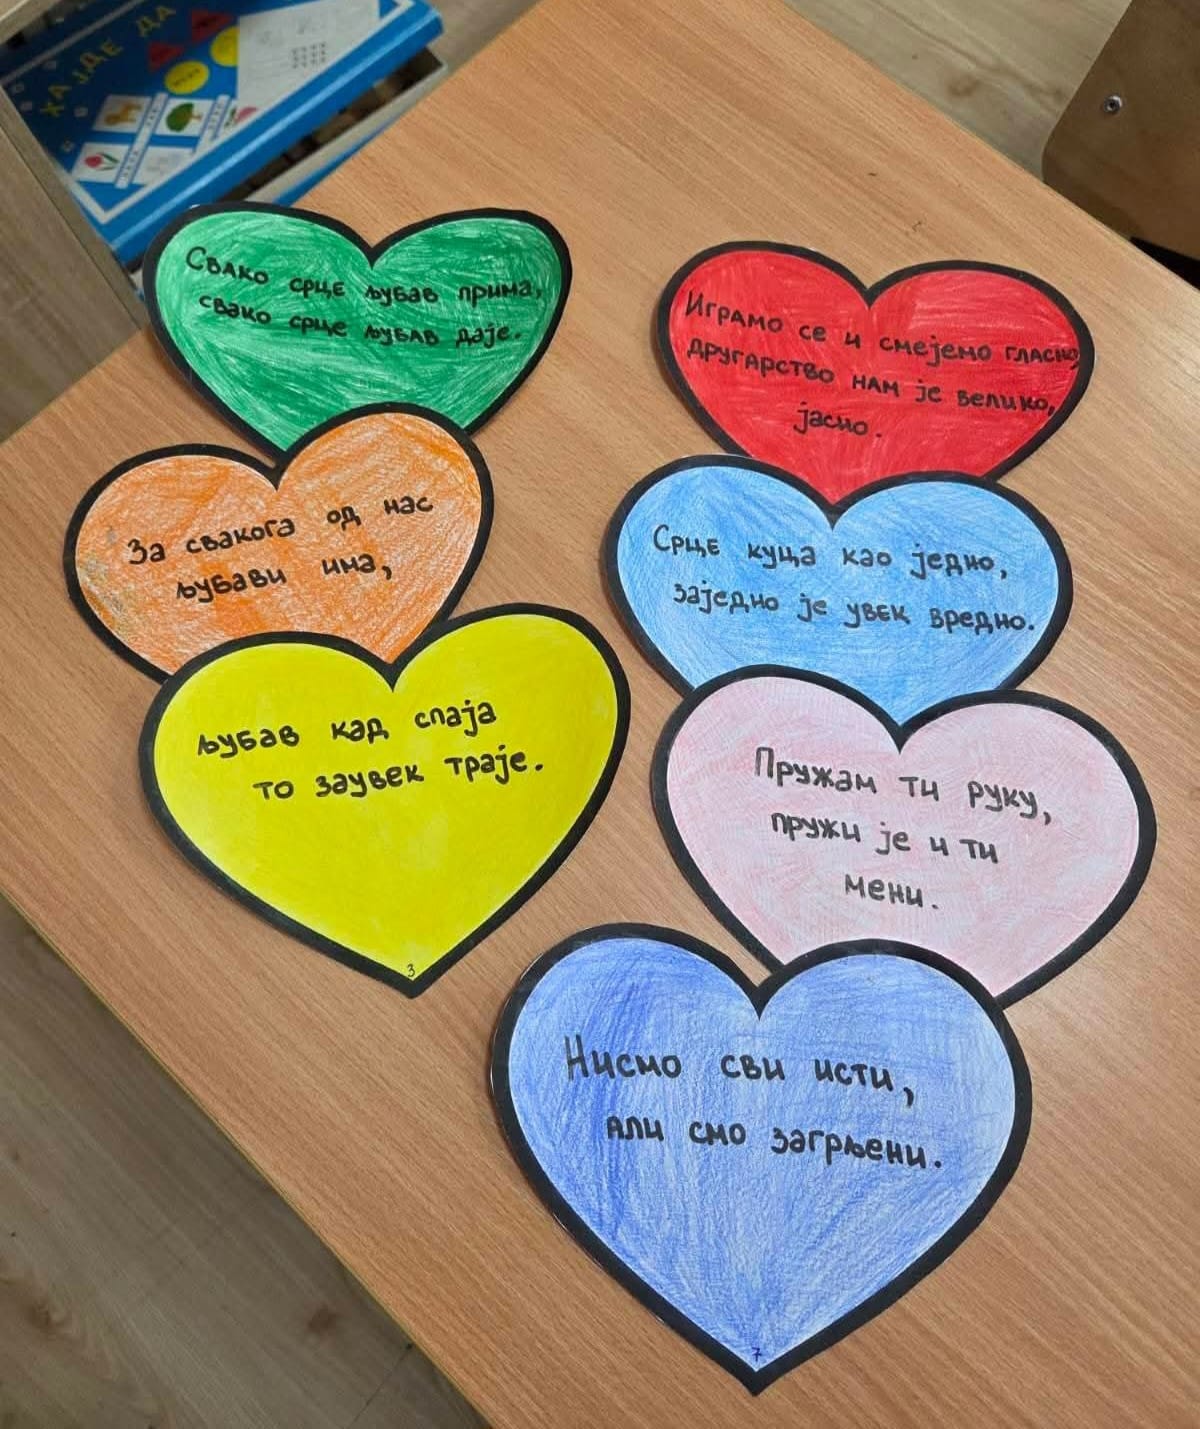 ХАЈДЕ ДА
Свако срце љубав прима,
свако срце љубав даје.
За свакога од нас
љубави има,
љубав кад спаја
то заувек траје.
3
Играмо се и смејемо гласно,
другарство нам је велико,
јасно.
Срце куца као једно,
заједно је увек вредно.
Пружам ти руку,
пружи је и ти
мени.
Нисмо сви исти,
али смо загрљени.
7